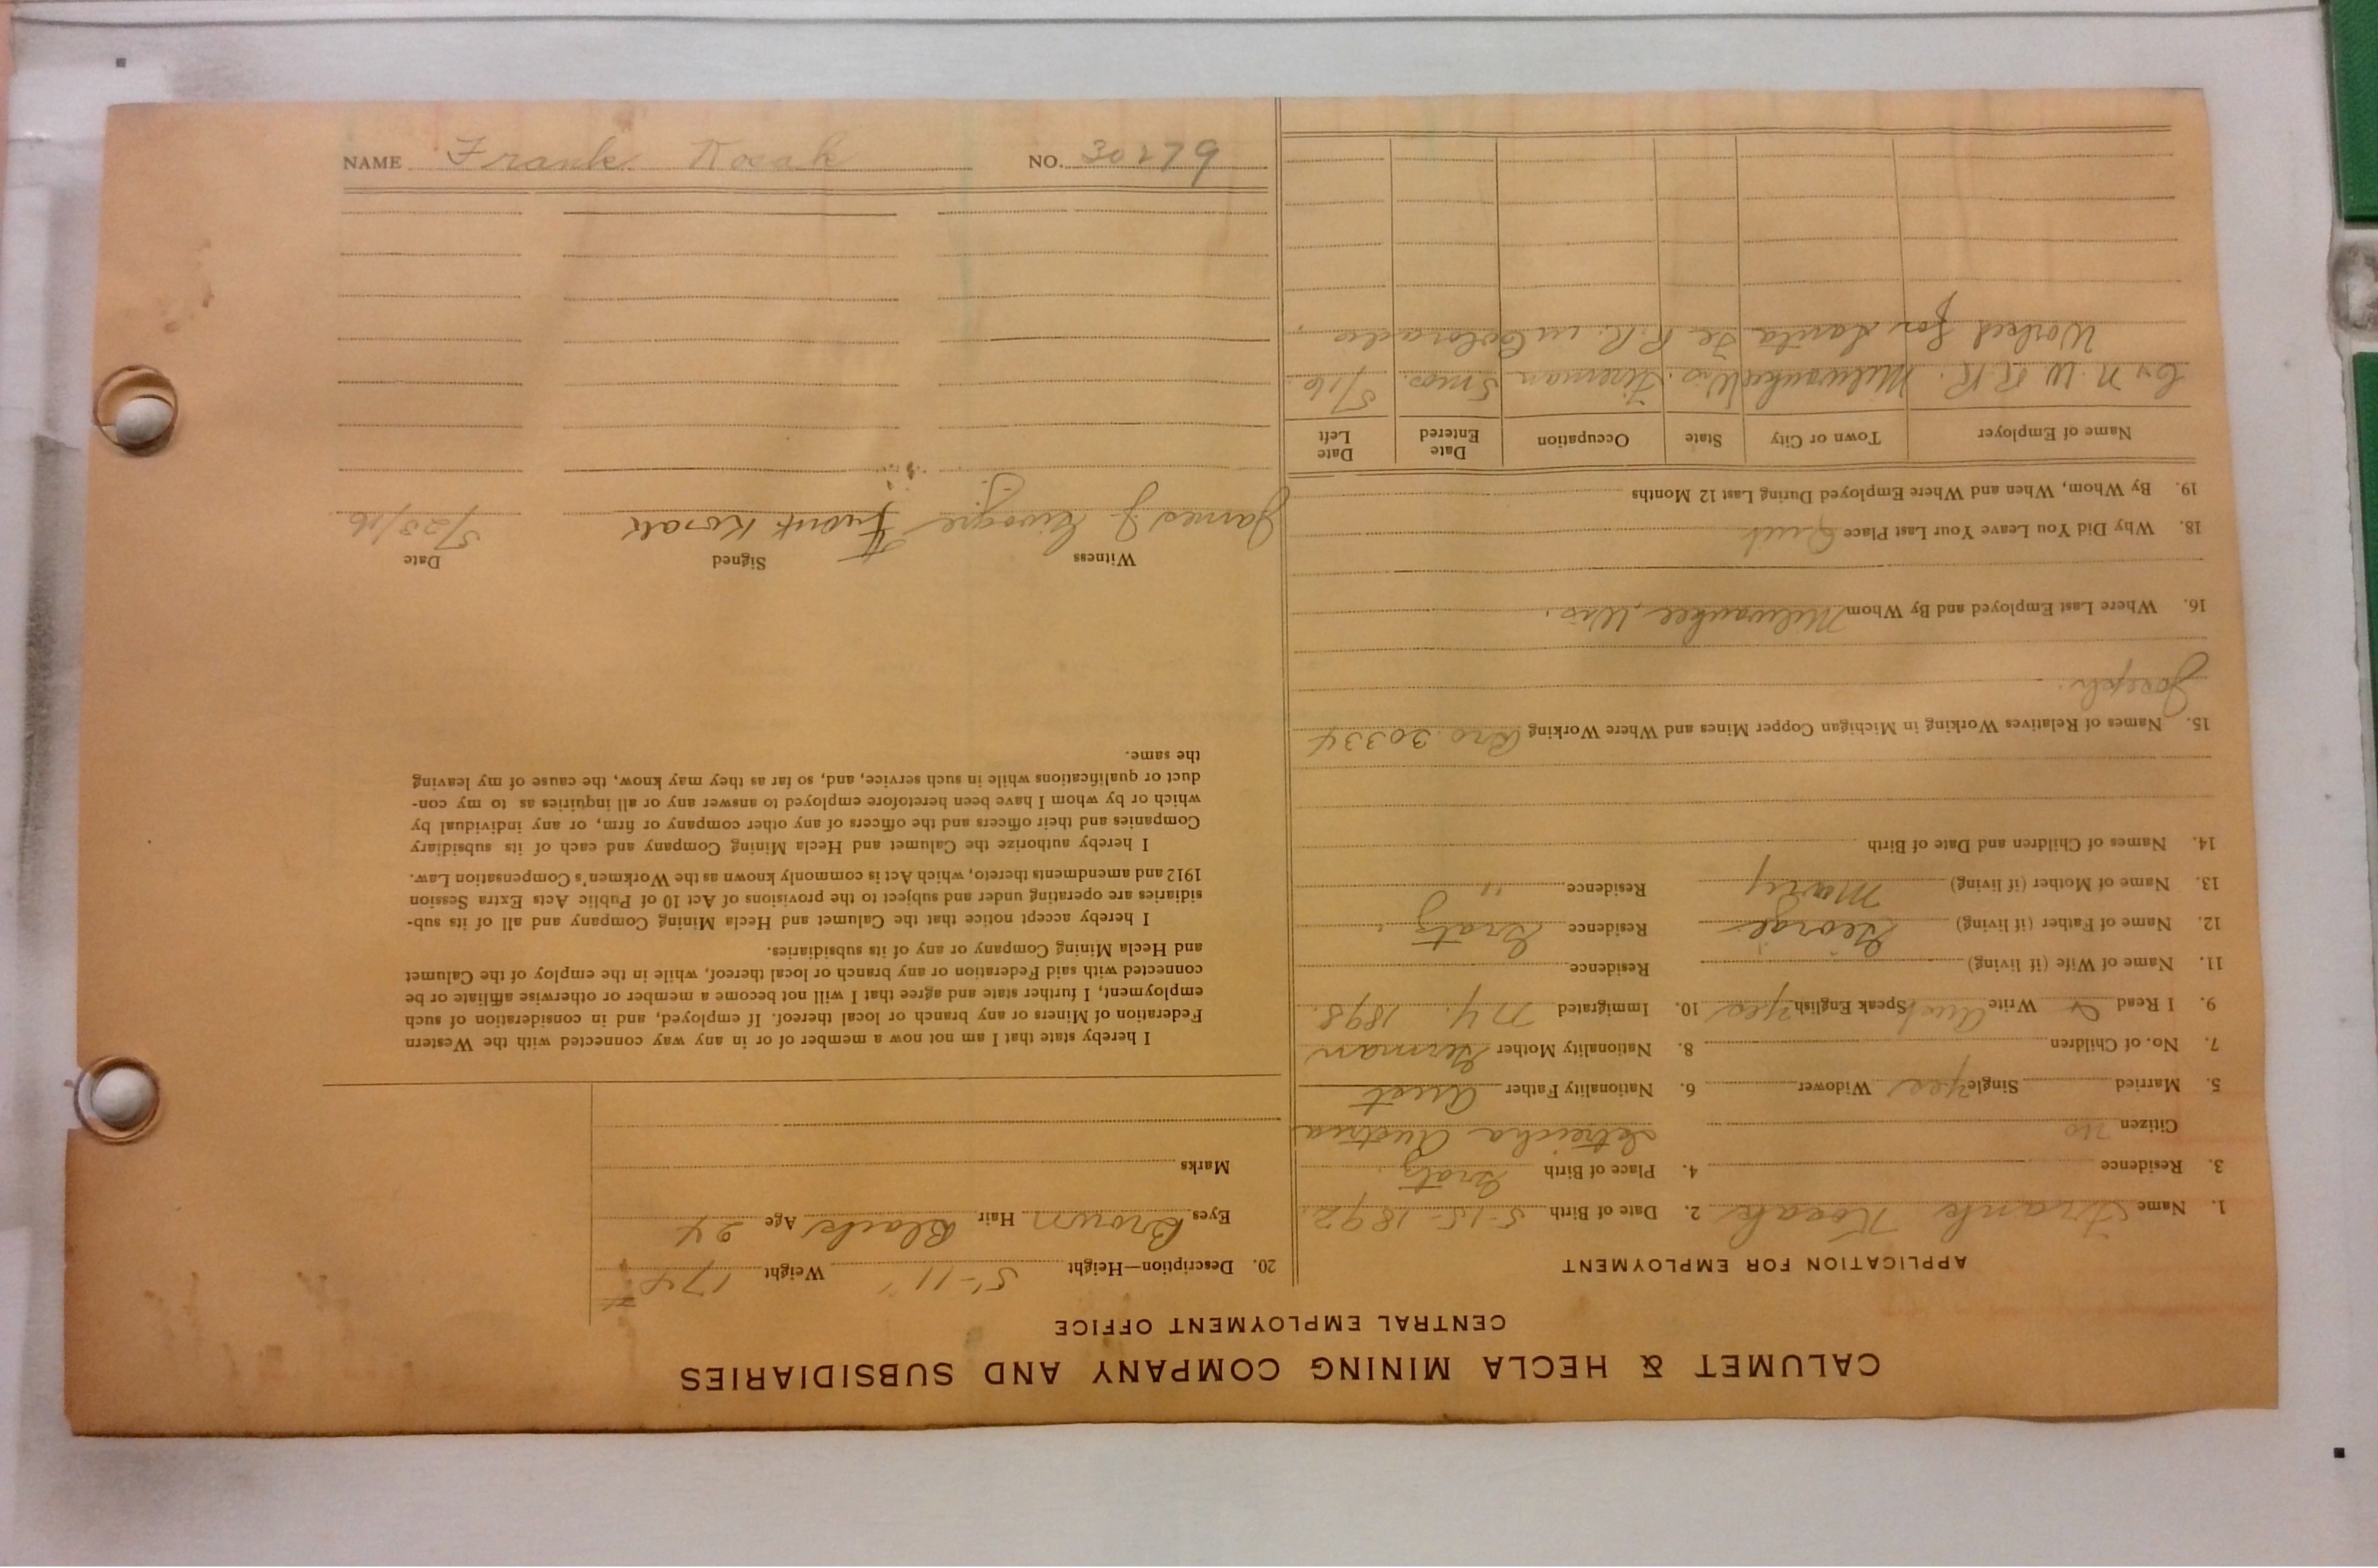 CALUMET & HECLA MINING COMPANY AND SUBSIDIARIES
CENTRAL EMPLOYMENT OFFICE
APPLICATION FOR EMPLOYMENT
1. Name Frank Kocah 2. Date of Birth 5-15-1892.
3. Residence 4. Place of Birth Gratz,
Citizen no Austria
5. Married Single yes Widower 6. Nationality Father Aust
7. No. of Children 8. Nationality Mother German
9. I Read & Write Speak English yes 10. Immigrated N.Y. 1898.
11. Name of Wife (if living) Residence
12. Name of Father (if living) George Residence Gratz,
13. Name of Mother (if living) Mary Residence "
14. Names of Children and Date of Birth
15. Names of Relatives Working in Michigan Copper Mines and Where Working Bro. 30334
Joseph.
16. Where Last Employed and By Whom Milwaukee, Wis.
18. Why Did You Leave Your Last Place Quit
19. By Whom, When and Where Employed During Last 12 Months
Name of Employer Town or City State Occupation Date Entered Date Left
C & N. W R.R. Milwaukee Wis. Fireman 5 mos. 5/16.
Worked for Santa Fe R.R. in Colorado,
20. Description—Height 5'-11" Weight 174#
Eyes Brown Hair Black Age 24
Marks
I hereby state that I am not now a member of or in any way connected with the Western
Federation of Miners or any branch or local thereof. If employed, and in consideration of such
employment, I further state and agree that I will not become a member or otherwise affiliate or be
connected with said Federation or any branch or local thereof, while in the employ of the Calumet
and Hecla Mining Company or any of its subsidiaries.
I hereby accept notice that the Calumet and Hecla Mining Company and all of its sub-
sidiaries are operating under and subject to the provisions of Act 10 of Public Acts Extra Session
1912 and amendments thereto, which Act is commonly known as the Workmen's Compensation Law.
I hereby authorize the Calumet and Hecla Mining Company and each of its subsidiary
Companies and their officers and the officers of any other company or firm, or any individual by
which or by whom I have been heretofore employed to answer any or all inquiries as to my con-
duct or qualifications while in such service, and, so far as they may know, the cause of my leaving
the same.
Witness Signed Date
James J. Frank Kocah 5/23/16
NAME Frank Kocah NO. 30279